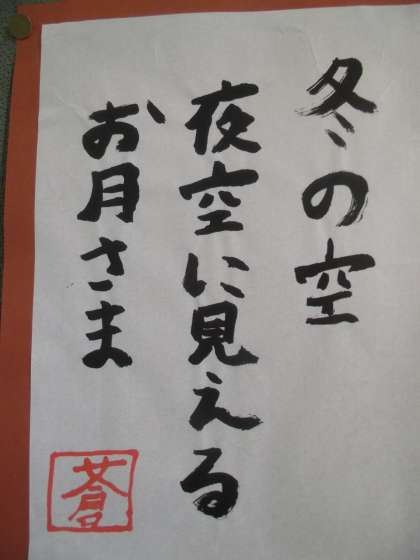 冬の空
夜空に見える
お月さま
蒼